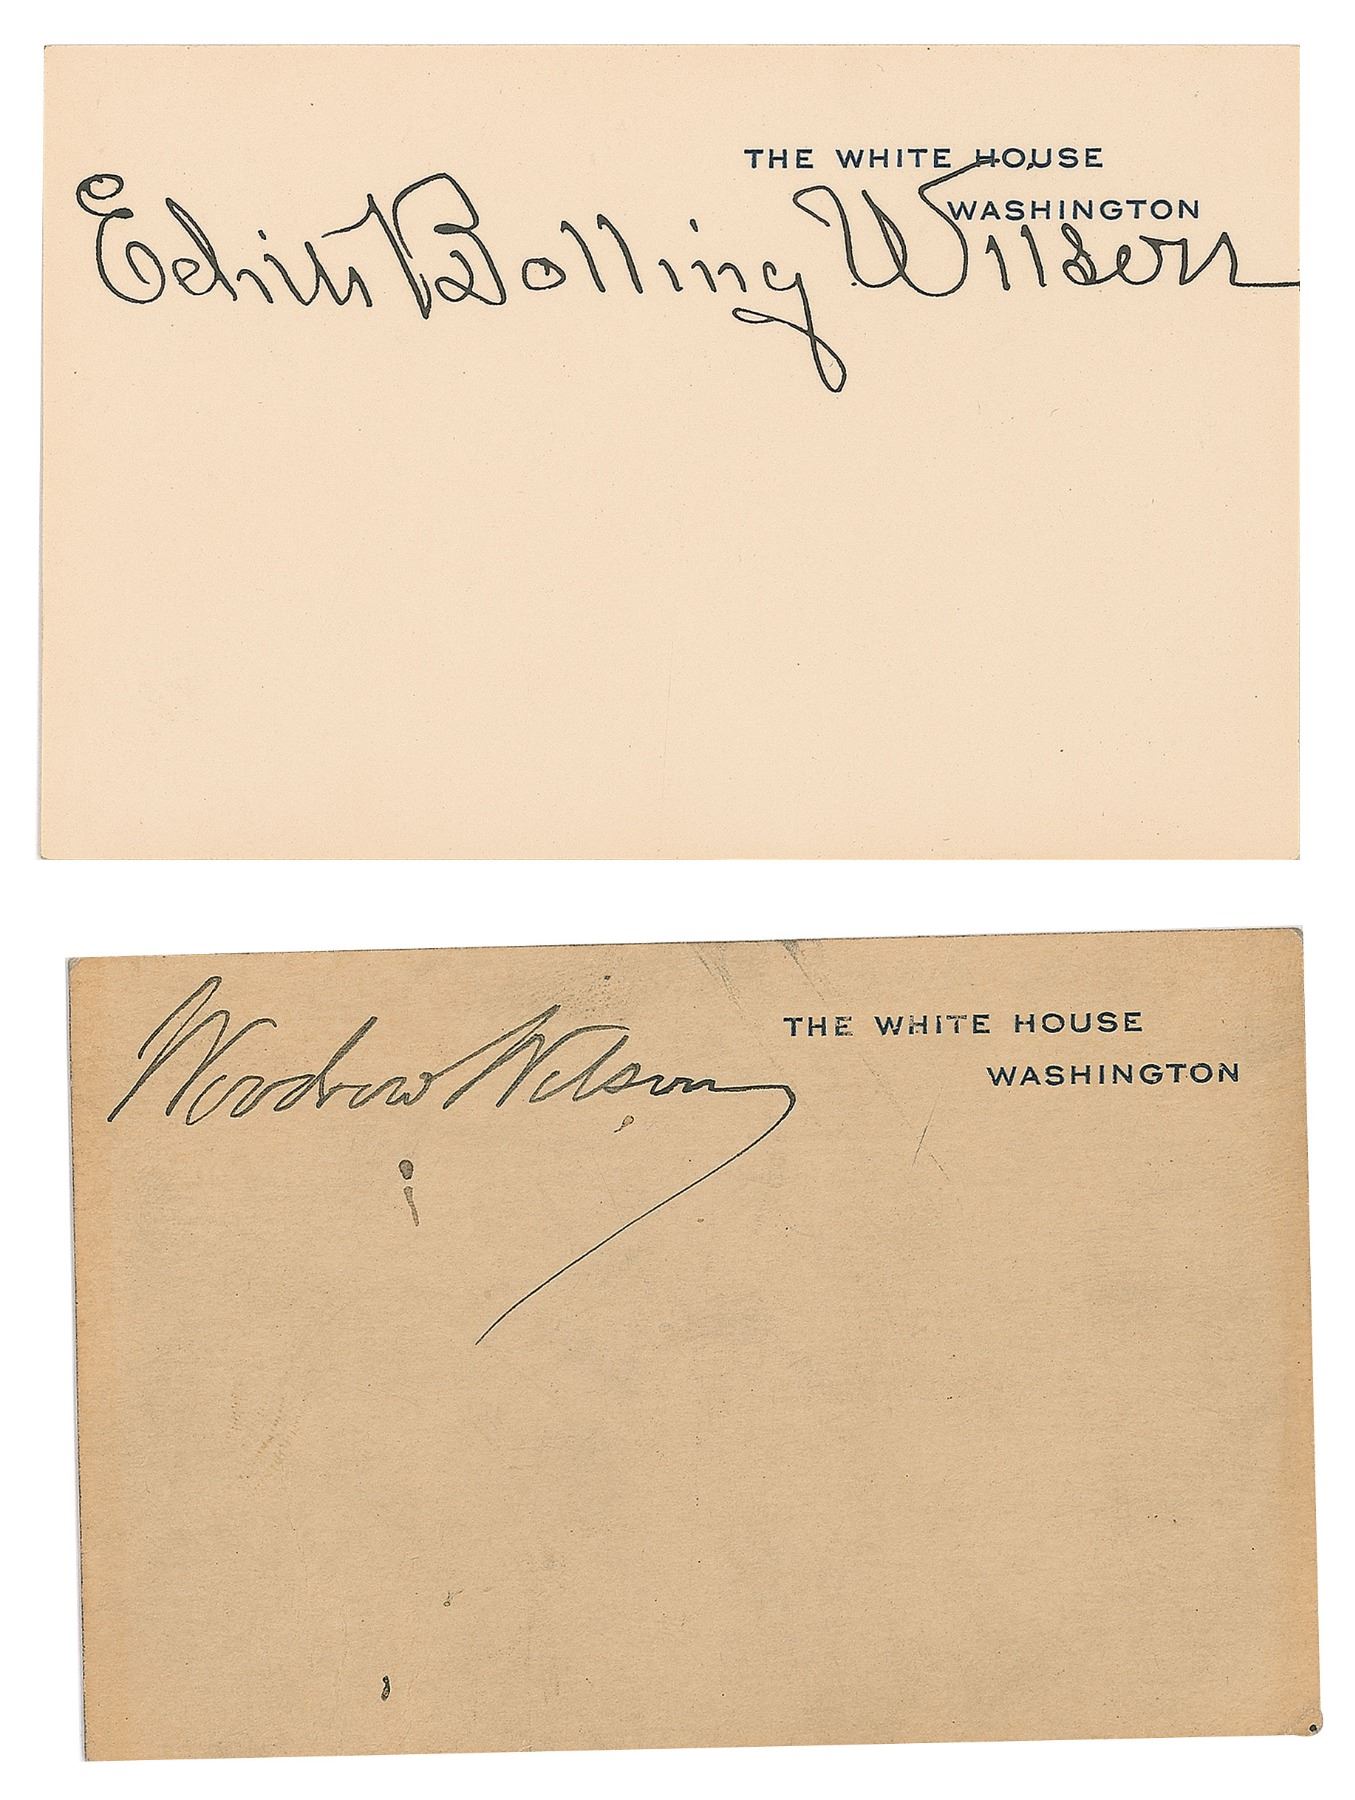 THE WHITE HOUSE
WASHINGTON
Edith Bolling Wilson
Woodrow Wilson
THE WHITE HOUSE
WASHINGTON